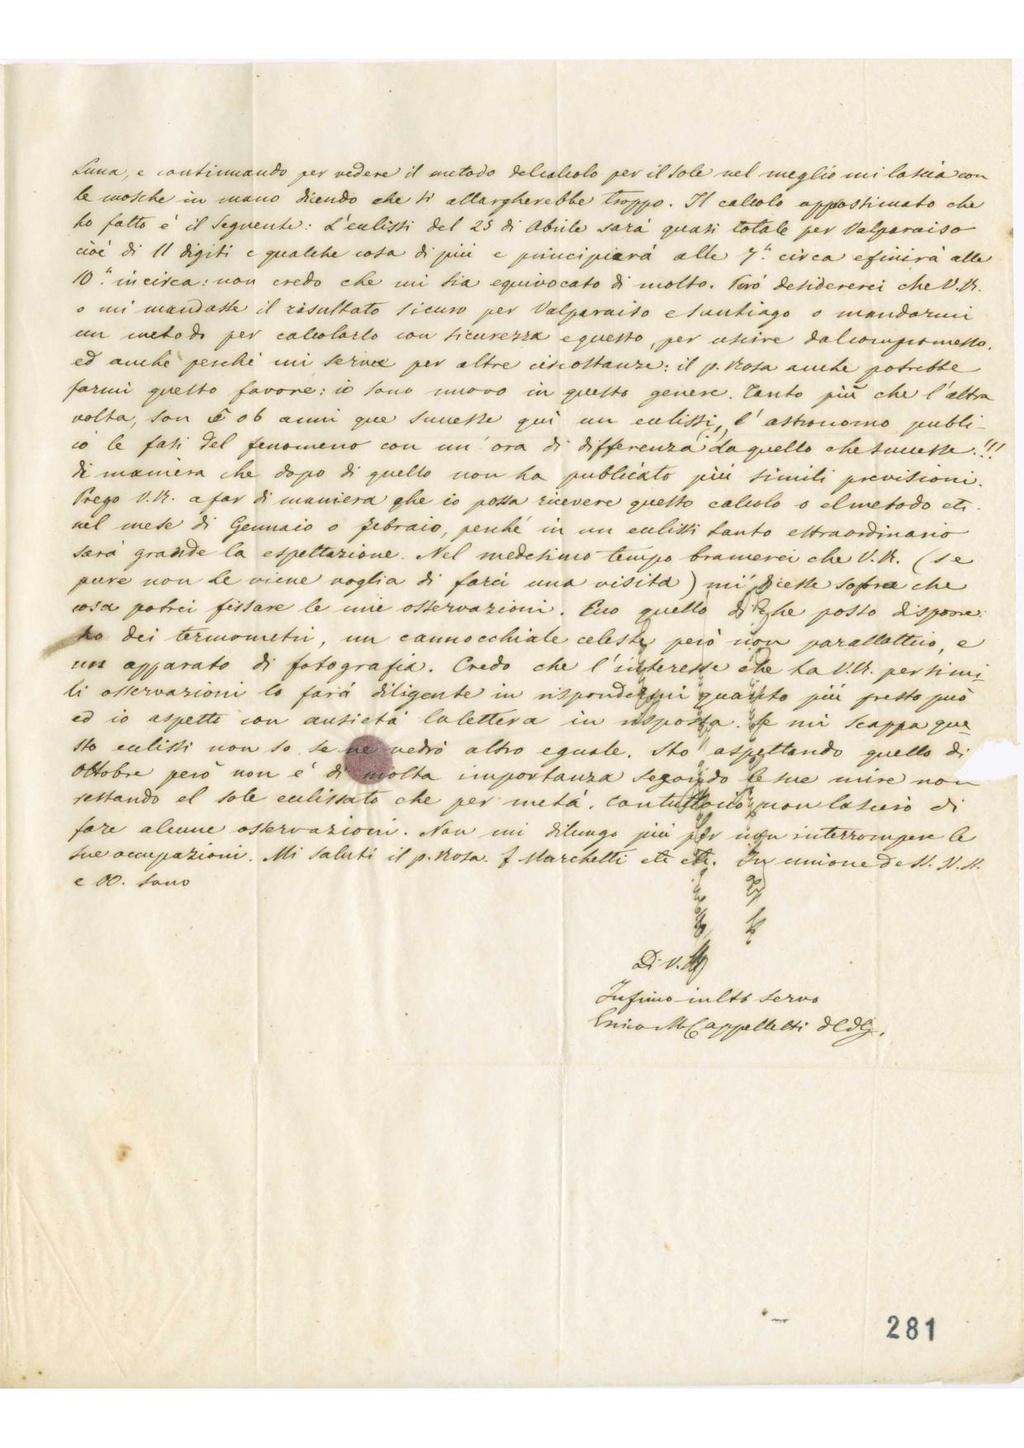 Luna, e continuando per vedere il metodo del calcolo per il Sole nel meglio mi lascia con
le mosche in mano dicendo che si allargherebbe troppo. Il calcolo approssimato che
ho fatto é il Seguente: L'eclissi del 25 di Abrile sará quasi totale per Valparaiso
cioé di 11 digiti e qualche cosa di piú e principiará alle 7.a circa e finirà alle
10.a in circa: non credo che mi sia equivocato di molto. Peró desidererei che V.R.
o mi mandasse il risultato sicuro per Valparaiso e Santiago o mandarmi
un metodo per calcolarlo con sicurezza e questo, per uscire dal compromesso,
ed anche perché mi serva per altre circostanze: il p. Rosa anche potrebbe
farmi questo favore: io sono nuovo in questo genere. Tanto piú che l'altra
volta, son 5 o 6 anni que successe quí un eclissi, l'astronomo publi-
co le fasi del fenomeno con un' ora di differenza da quello che successe!!!
di maniera che dopo di quello non ha publicato piú simili previsioni.
Prego V.R. a far di maniera che io possa ricevere questo calcolo o el metodo etc.
nel mese di Gennaio o febraio, perché in un eclissi tanto estraordinario
sará grande la espettazione. Nel medesimo tempo bramerei che V.R. (se
pure non Le viene voglia di farci una visita) mi dicesse sopra che
cosa potrei fissare le mie osservazioni. Tuo quello di che posso disporre:
ho dei termometri, un cannocchiale celeste peró non parallattico, e
un apparato di fotografia. Credo che l'interesse che ha V.R. per simi
li osservazioni lo fará diligente in rispondermi quanto piú presto puó
ed io aspetto con ansietá la lettera in risposta. Se mi scappa que
sto eclissi non so se ne vedró altro eguale. Sto aspettando quello di
Ottobre peró non é di molta importanza segondo le sue mire non
restando el sole eclissato che per metá. Contuttoció non lasceró di
fare alcune osservazioni. Non mi dilungo piú per non interrompere le
sue occupazioni. Mi saluti il p. Rosa. f. Marchetti etc etc. In unione de SS. SS.
e OO. sono
Di V.R.
Infimo in Cto servo
Enrico M Cappelletti d C d G.
281